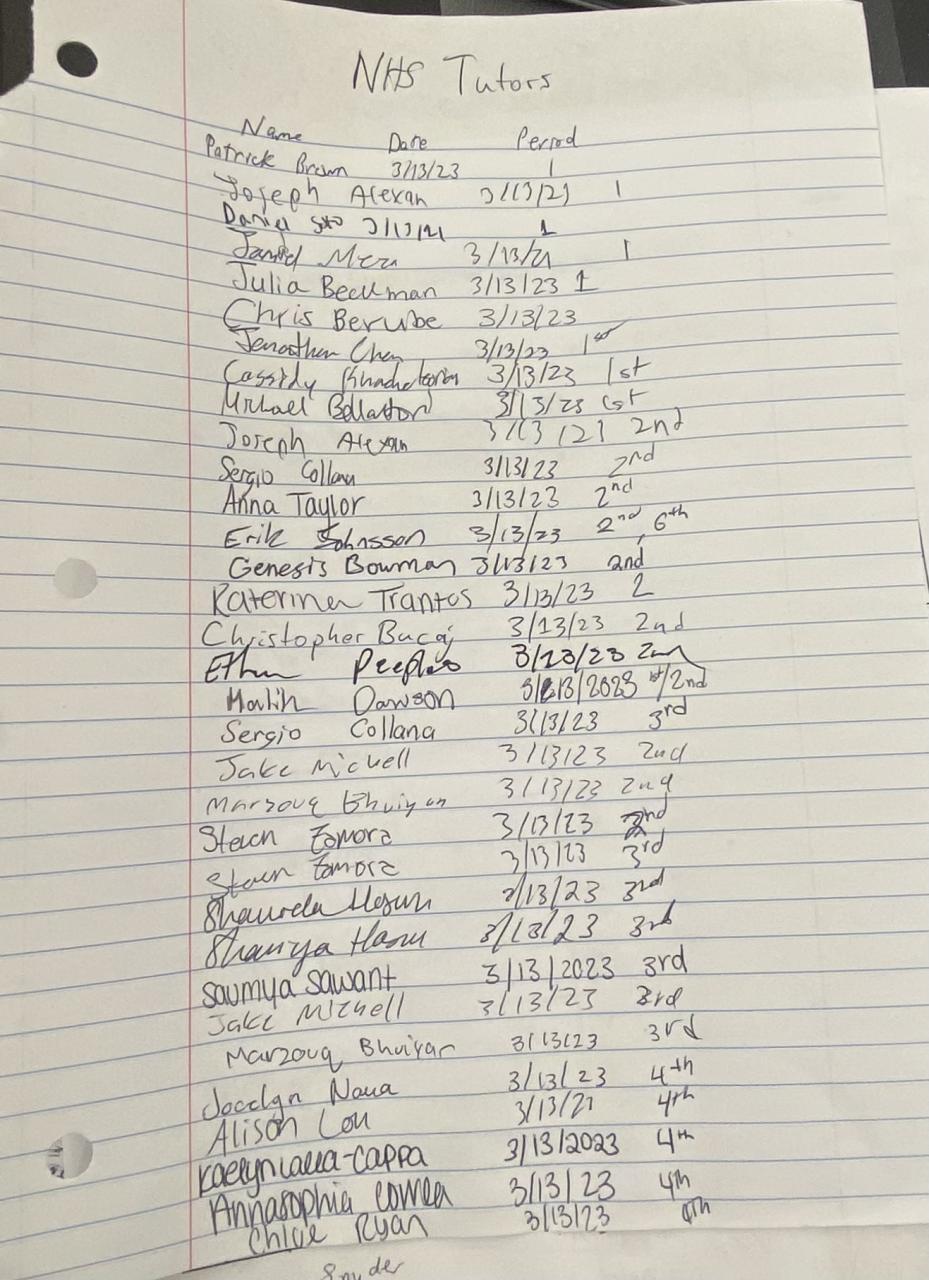 NHS Tutors
Name Date Period
Patrick Brown 3/13/23 1
Joseph Alexan 3/13/23 1
Daniel 3/13/21 1
3/13/21 1
Julia Beckman 3/13/23 1
Chris Berube 3/13/23
Jonathan Chen 3/13/23 1st
Cassidy 3/13/23 1st
Michael 3/13/23 1st
Joseph Alexan 3/13/21 2nd
Sergio Collana 3/13/23 2nd
Anna Taylor 3/13/23 2nd
Erik Johnsson 3/13/23 2nd, 6th
Genesis Bowman 3/13/23 2nd
Katerina Trantos 3/13/23 2
Christopher Bucaj 3/13/23 2nd
Ethan Peeples 3/23/23 2nd
Malik Dawson 3/13/2023 1st/2nd
Sergio Collana 3/13/23 3rd
Jake Mizhell 3/13/23 2nd
Marzouq Bhuiyan 3/13/23 2nd
Steven Zamora 3/13/23 2nd
Steven Zamora 3/13/23 3rd
3/13/23 3rd
3/13/23 3rd
Saumya Sawant 3/13/2023 3rd
Jake Mizhell 3/13/23 3rd
Marzouq Bhuiyan 3/13/23 3rd
Jocelyn Nava 3/13/23 4th
Alison Lou 3/13/21 4th
3/13/2023 4th
Annasophia Correa 3/13/23 4th
Chloe Ryan 3/13/23 4th
Snyder